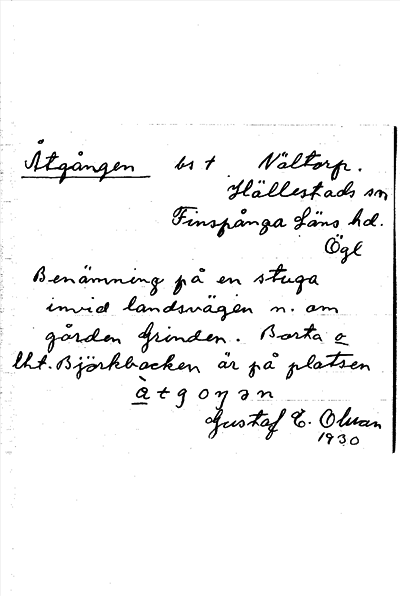 Åtgången bs t Nältorp.
Hällestads sn
Finspånga Läns hd.
Ögl
Benämning på en stuga
invid landsvägen n. om
gården Grinden. Borta o
lht. Björkbacken är på platsen
à t g o ŋ ə n
Gustaf E. Olsson
1930